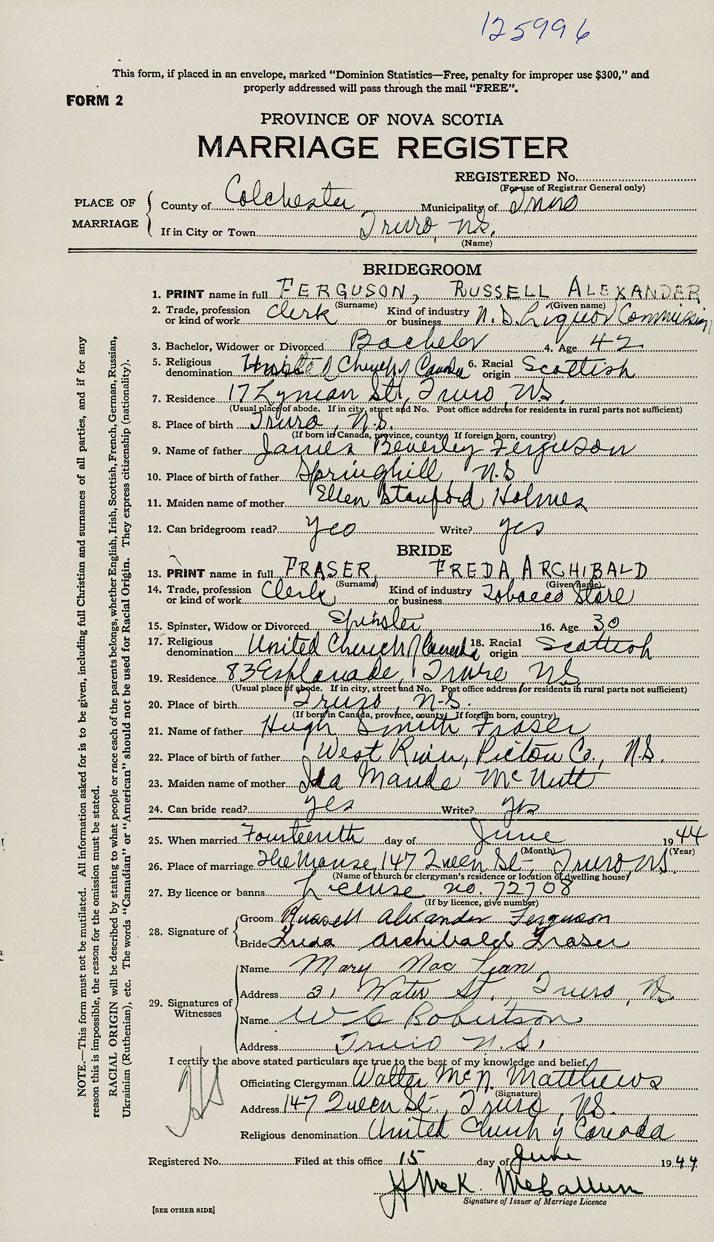 125996
This form, if placed in an envelope, marked "Dominion Statistics—Free, penalty for improper use $300," and
properly addressed will pass through the mail "FREE".
FORM 2
PROVINCE OF NOVA SCOTIA
MARRIAGE REGISTER
REGISTERED No.
(For use of Registrar General only)
PLACE OF MARRIAGE
County of Colchester Municipality of Truro
If in City or Town Truro, N.S.
(Name)
BRIDEGROOM
1. PRINT name in full FERGUSON, RUSSELL ALEXANDER
(Surname) (Given name)
2. Trade, profession or kind of work Clerk Kind of industry or business N.S. Liquor Commission
3. Bachelor, Widower or Divorced Bachelor 4. Age 42
5. Religious denomination United Church of Canada 6. Racial origin Scottish
7. Residence 17 Lyman St, Truro N.S.
(Usual place of abode. If in city, street and No. Post office address for residents in rural parts not sufficient)
8. Place of birth Truro, N.S.
(If born in Canada, province, county) If foreign born, country)
9. Name of father James Beverley Ferguson
10. Place of birth of father Springhill N.S
11. Maiden name of mother Ellen Stanford Holmes
12. Can bridegroom read? Yes Write? yes
BRIDE
13. PRINT name in full FRASER, FREDA ARCHIBALD
(Surname) (Given name)
14. Trade, profession or kind of work Clerk Kind of industry or business Tobacco Store
15. Spinster, Widow or Divorced Spinster 16. Age 30
17. Religious denomination United Church of Canada 18. Racial origin Scottish
19. Residence 83 Esplanade, Truro NS
(Usual place of abode. If in city, street and No. Post office address for residents in rural parts not sufficient)
20. Place of birth Truro, N.S.
(If born in Canada, province, county) If foreign born, country)
21. Name of father Hugh Smith Fraser
22. Place of birth of father West River, Pictou Co., N.S.
23. Maiden name of mother Ida Maude McNutt
24. Can bride read? yes Write? yes
25. When married Fourteenth day of June 1944
(Month) (Year)
26. Place of marriage The Manse, 147 Queen St- Truro NS.
(Name of church or clergyman's residence or location of dwelling house)
27. By licence or banns License no. 72708
(If by licence, give number)
28. Signature of
Groom Russell Alexander Ferguson
Bride Freda Archibald Fraser
29. Signatures of Witnesses
Name Mary Mac
Address 31 Water St., Truro, NS
Name W C Robertson
Address Truro N.S.
I certify the above stated particulars are true to the best of my knowledge and belief.
Officiating Clergyman Walter McN. Matthews
(Signature)
Address 147 Queen St-, Truro, NS.
Religious denomination United Church of Canada
Registered No. Filed at this office 15 day of June 1944
H McK. McCallum
Signature of Issuer of Marriage Licence
[SEE OTHER SIDE]
NOTE.—This form must not be mutilated. All information asked for is to be given, including full Christian and surnames of all parties, and if for any
reason this is impossible, the reason for the omission must be stated.
RACIAL ORIGIN will be described by stating to what people or race each of the parents belongs, whether English, Irish, Scottish, French, German, Russian,
Ukrainian (Ruthenian), etc. The words "Canadian" or "American" should not be used for Racial Origin. They express citizenship (nationality).